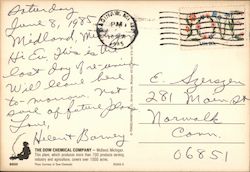 Saturday
June 8, 1985
Midland, Mi
Hi Ev, This is the
last day of reunion
Will leave here
to-morrow. Not
sure of future plans
Love
Helen & Barney
E. Szerszen
281 Main St
Norwalk
Conn.
06851
THE DOW CHEMICAL COMPANY — Midland, Michigan.
This plant, which produces more than 700 products serving
industry and agriculture, covers over 1500 acres.